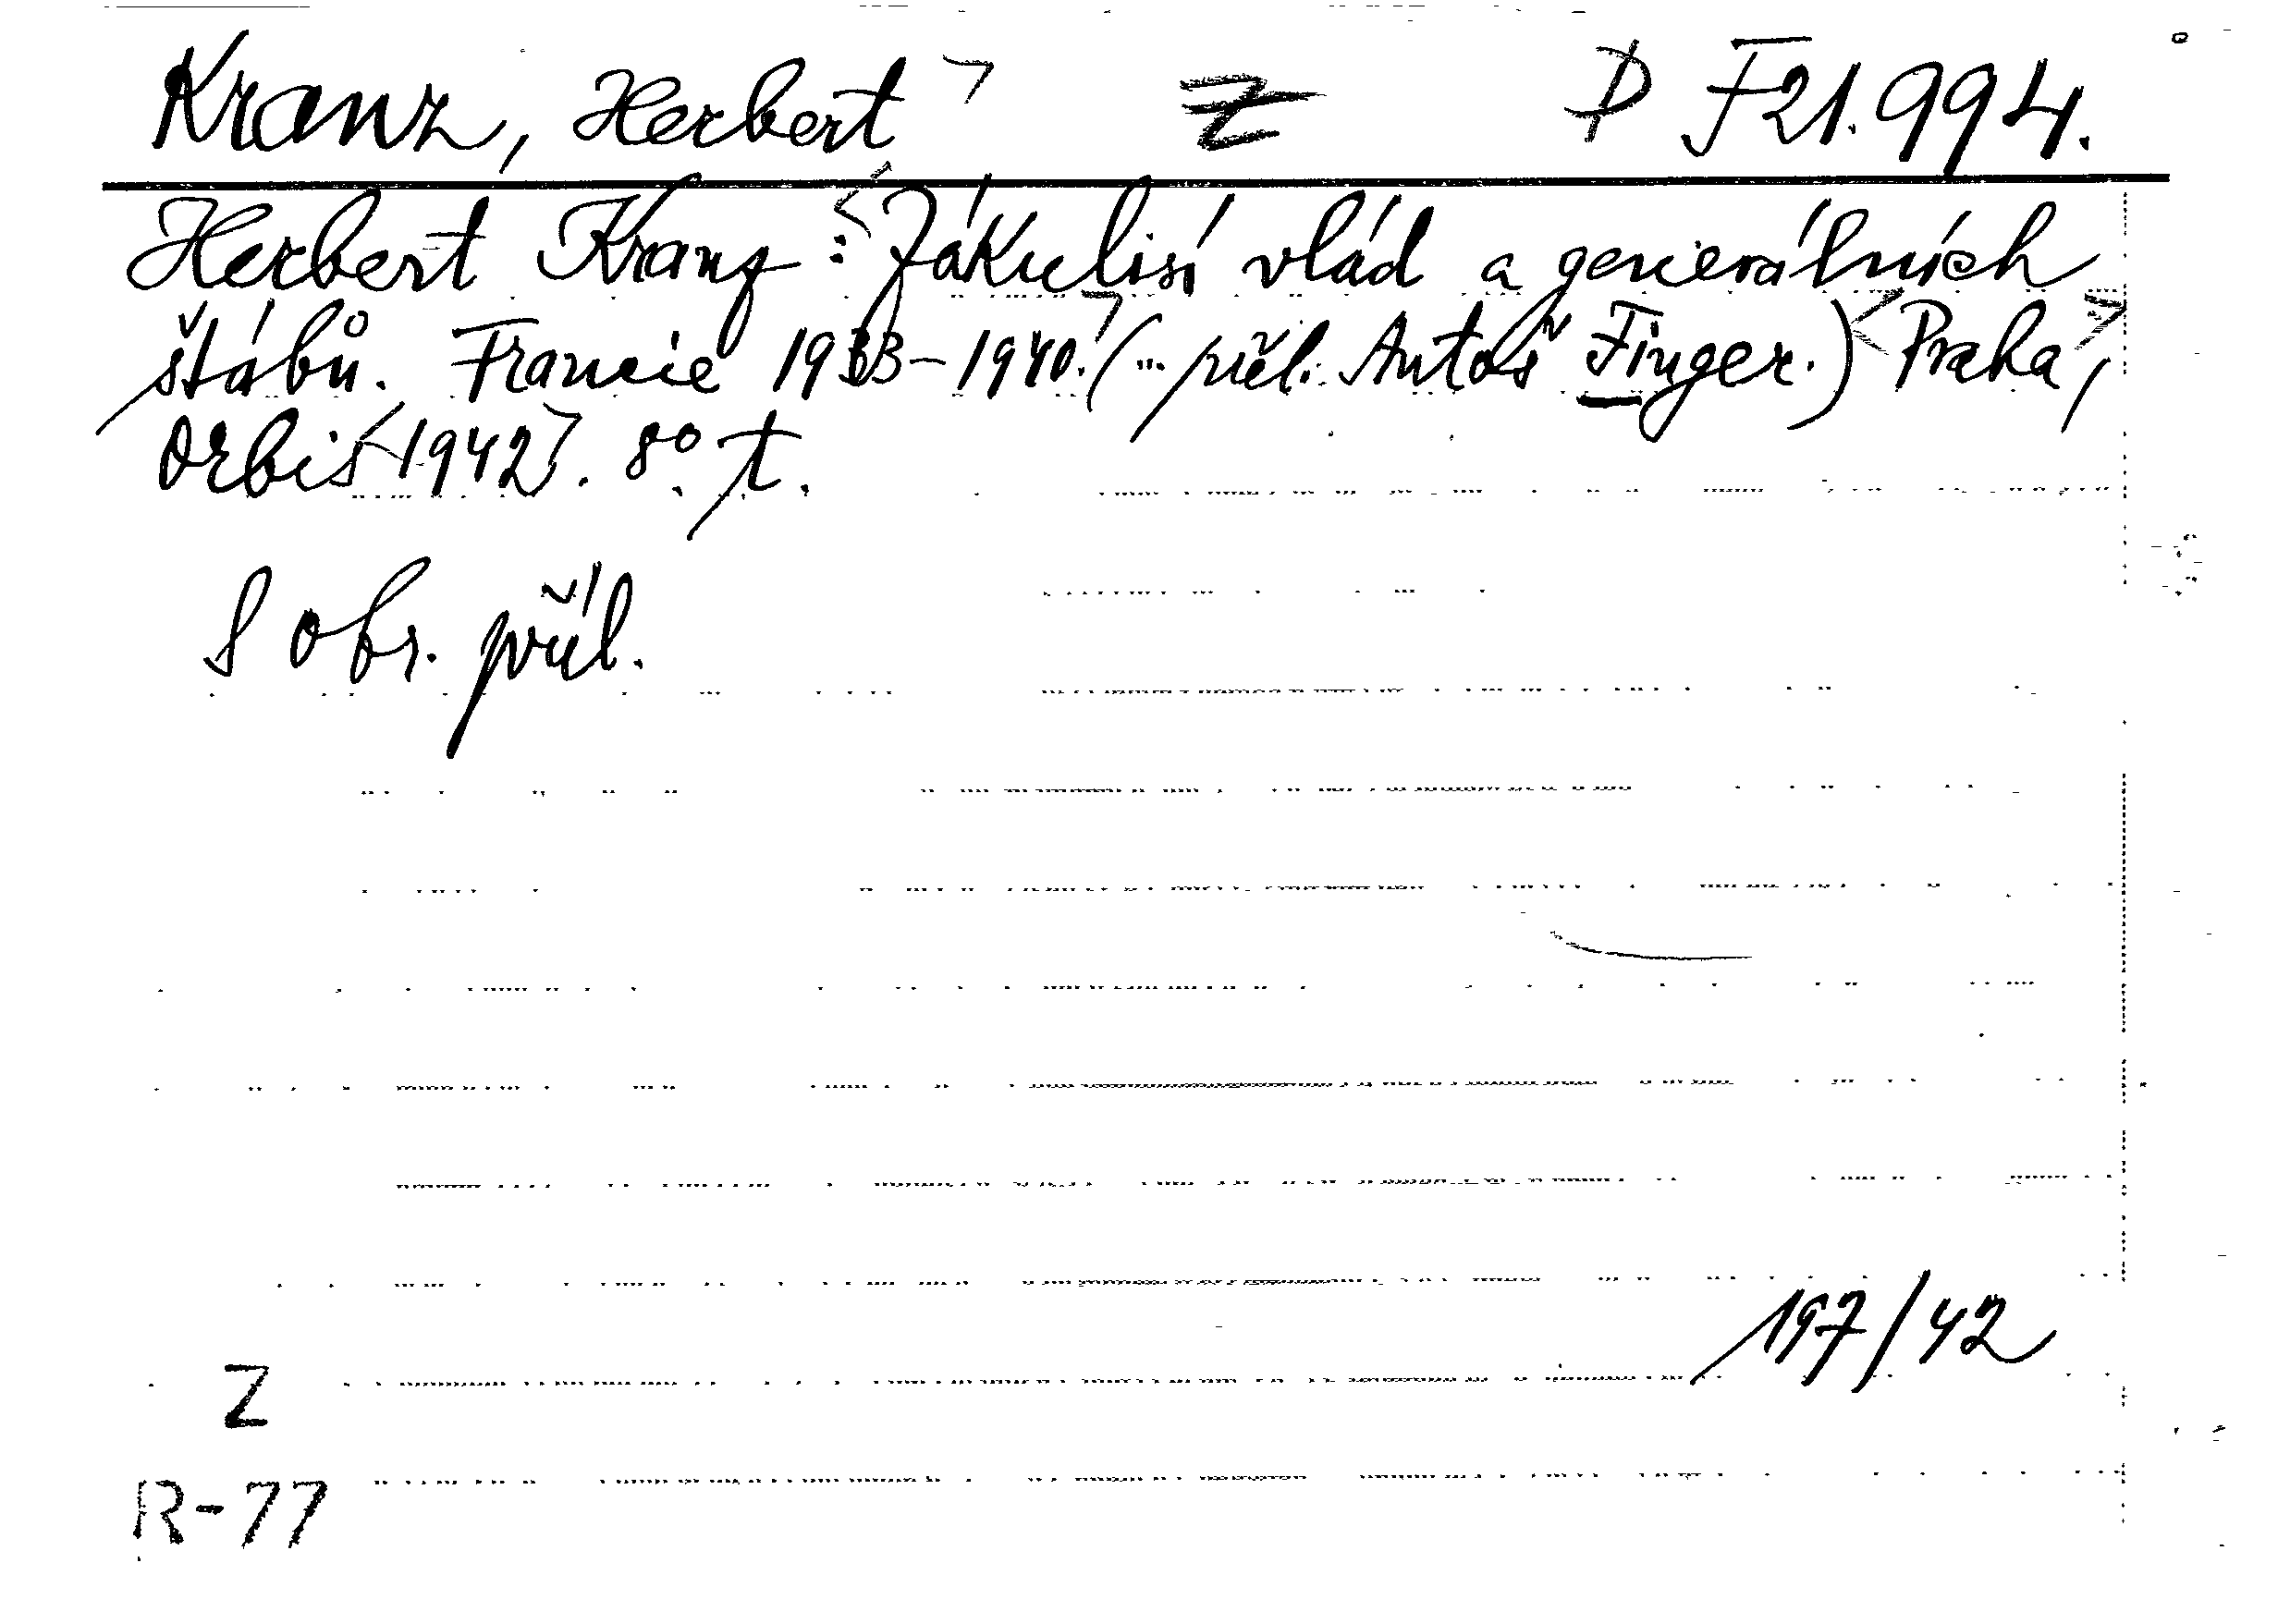 Kranz, Herbert Z D F 21.994.
Herbert Kranz: Zákulisí vlád a generálních
štábů. Francie 1933-1940. (... přel. Antoš Finger.) Praha,
Orbis 1942. 8°. t.
S obr. příl.
197/42
Z
R-77